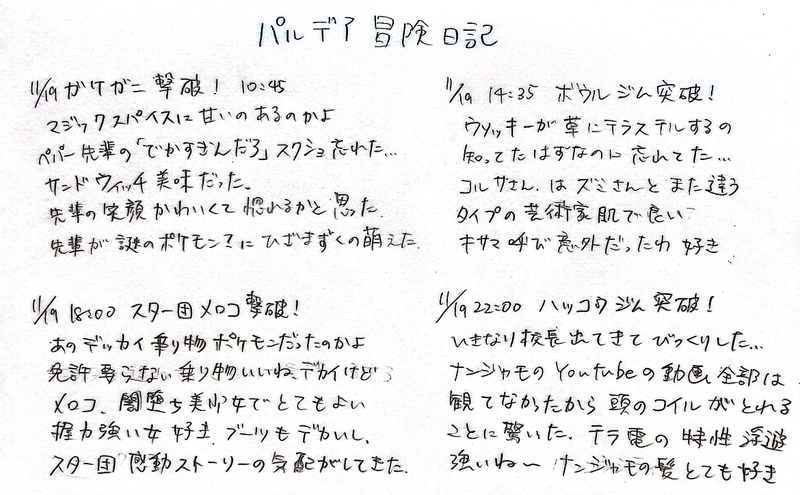 パルデア冒険日記
11/19 ガケガニ 撃破! 10:45
マジックスパイスに甘いのあるのかよ
ペパー先輩の「でかすぎんだろ」スクショ忘れた…
サンドウィッチ美味だった.
先輩の笑顔かわいくて惚れるかと思った.
先輩が謎のポケモン?にひざまずくの萌えた.
11/19 14:35 ボウルジム突破!
ウソッキーが草にテラスタルするの
知ってたはずなのに忘れてた…
コルサさん.はズミさんとまた違う
タイプの芸術家肌で良い
キサマ呼び意外だったわ 好き
11/19 18:00 スター団メロコ撃破!
あのデッカイ乗り物ポケモンだったのかよ
免許要らない乗り物いいね、デカイけど
メロコ、闇堕ち美少女でとてもよい
握力強い女好き. ブーツもデカいし.
スター団 感動ストーリーの気配がしてきた.
11/19 22:00 ハッコウジム突破!
いきなり校長出てきてびっくりした…
ナンジャモのYoutubeの動画全部は
観てなかったから頭のコイルがとれる
ことに驚いた. テラ電の特性浮遊
強いね〜 ナンジャモの髪とても好き